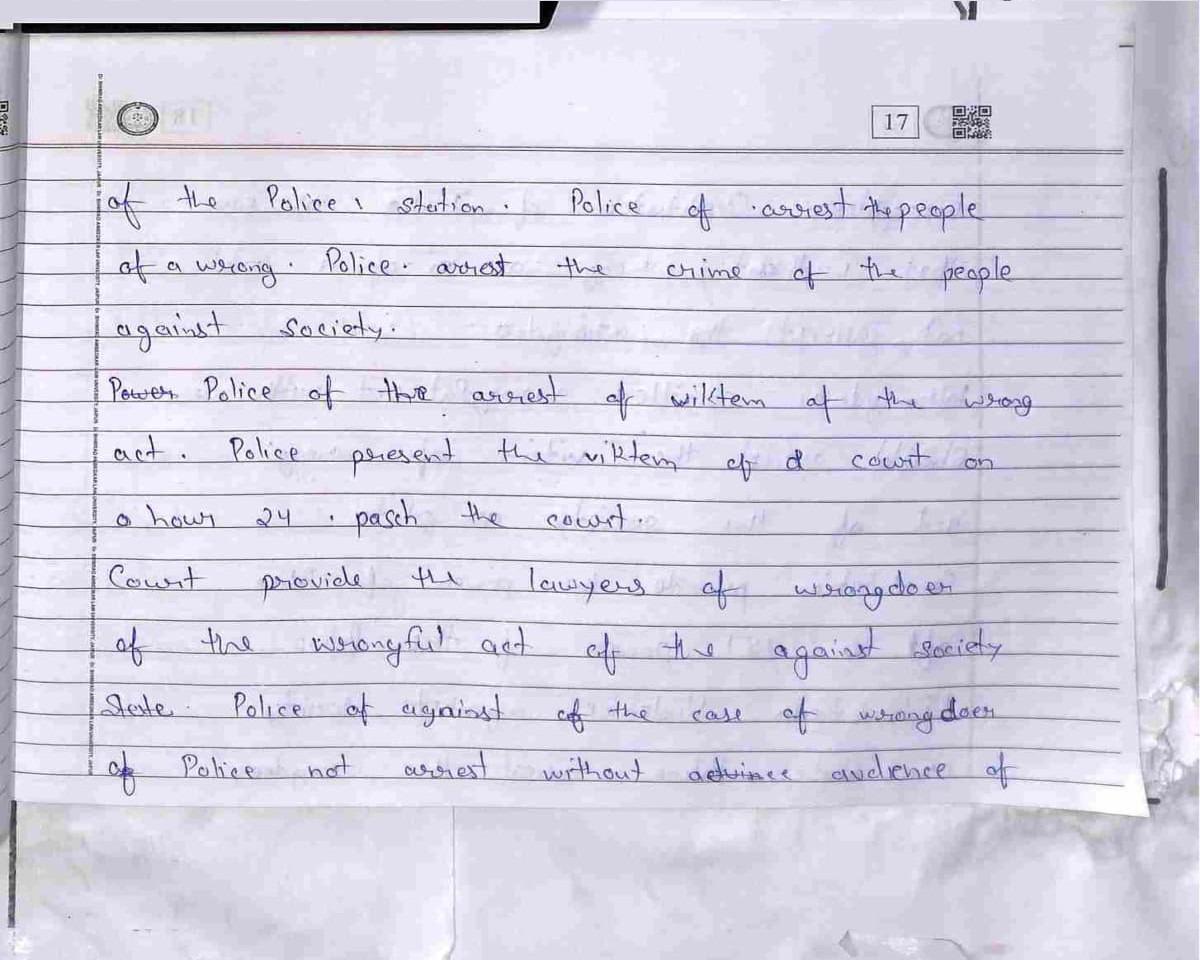 17
of the Police station. Police of arrest the people
of a wrong. Police. arrest the crime of the people
against society.
Power Police of the arrest of viktem of the wrong
act. Police present the viktem of d court on
a hour 24 . pasch the court.
Court provide the lawyers of wrongdoer
of the wrongful act of the against society
State. Police of against of the case of wrongdoer
of Police not arrest without audience of